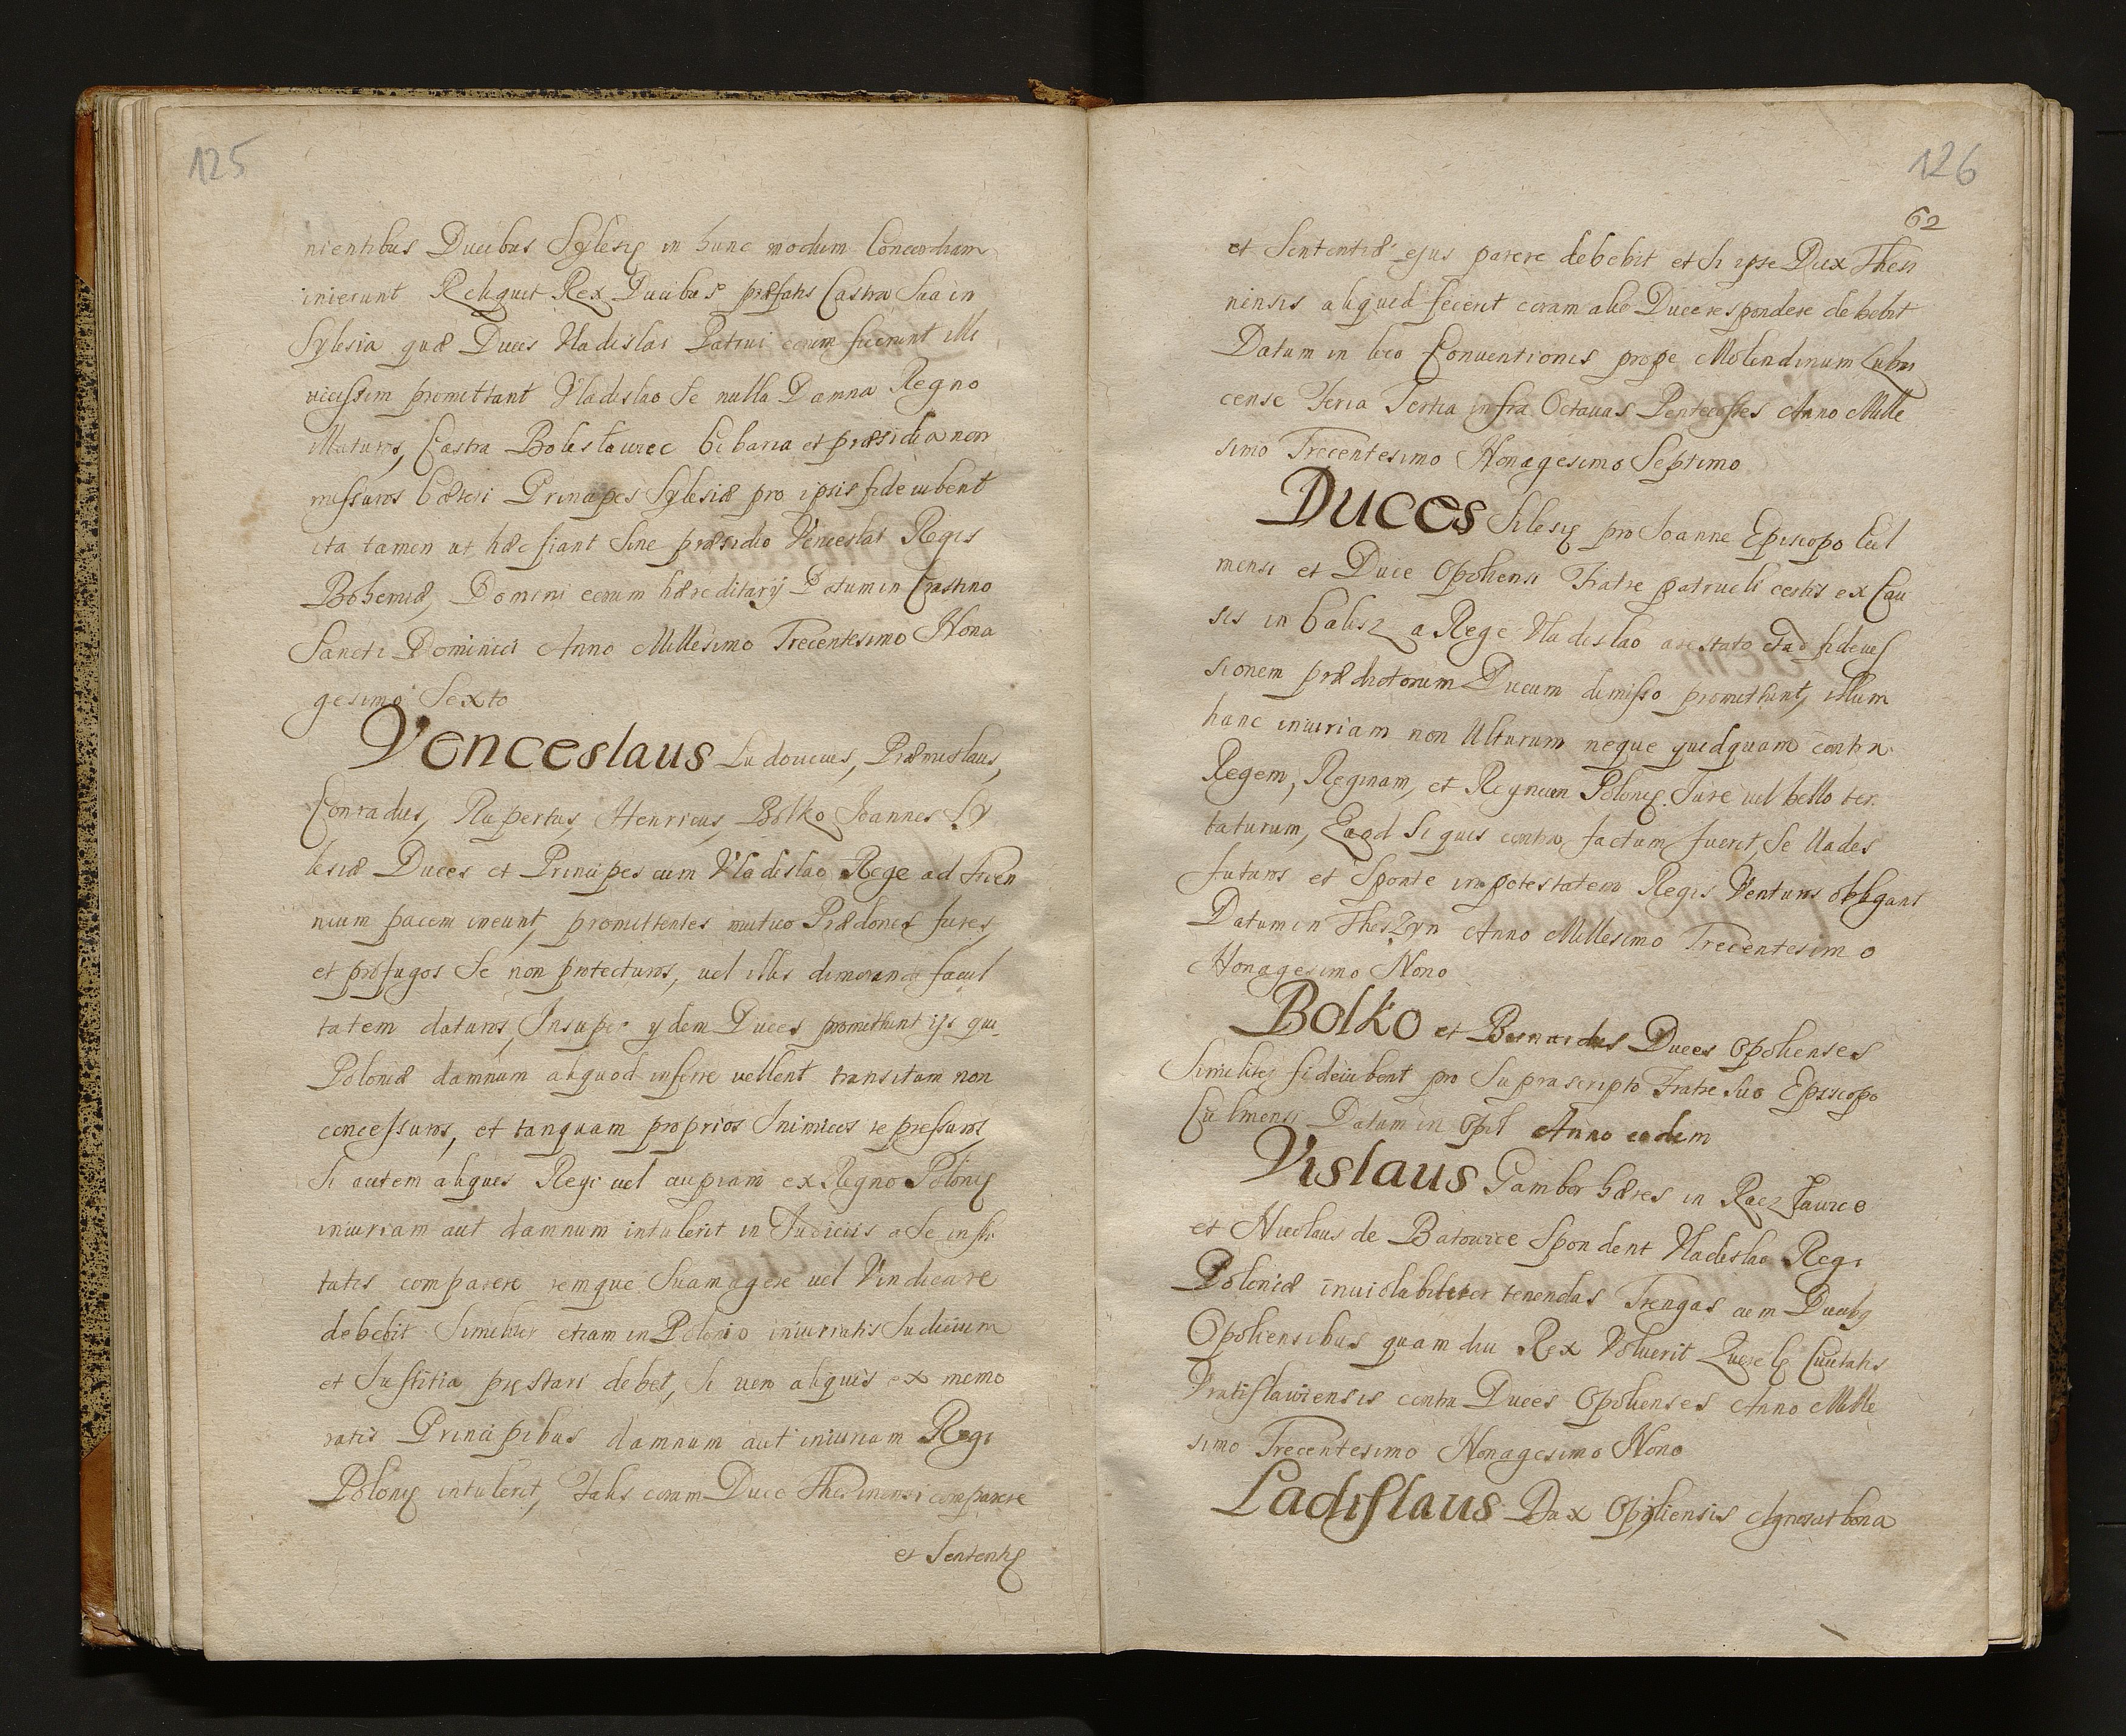 125
nientibus Ducibus Sylesię in hunc modum Concordiam
inierunt Reliquit Rex Ducibus præfatis Castra Sua in
Sylesia quæ Duces Vladislai Patrui eorum fuerunt illi
vicissim promittant Vladislao Se nulla Damna Regno
illaturos, Castra Boleslawiec Cibaria et præsidia non
missuros Cæteri Principes Sylesiæ pro ipsis fideiubent
ita tamen ut hæc fiant Sine præsidio Venceslai Regis
Bohemiæ, Domini eorum hæreditarÿ Datum in Crastino
Sancti Dominici Anno Millesimo Trecentesimo Nona
gesimo Sexto
Venceslaus Ludouicus, Præmislaus,
Conradus, Rupertus, Henricus, Bolko Joannes Sy
lesiæ Duces et Principes cum Vladislao Rege ad trien
nium pacem ineunt, promittentes mutuo Prædones fures,
et profugos Se non protecturos, vel illis dimorandi facul
tatem daturos, Insuper ÿdem Duces promittunt ijs qui
Poloniæ damnum aliquod inferre vellent transitum non
concessuros, et tanquam proprios Inimicos repressuros,
Si autem aliquis Regi vel cuipiam ex Regno Polonię
iniuriam aut damnum intulerit in Judiciis a Se insti
tutis comparere remque Suam agere vel Vindicare
debebit Similiter etiam in Polonia iniurialis Judicium
et Justitia pręstari debet, Si vero aliquis ex memo
ratis Principibus damnum aut iniuriam Regi
Polonię intulerit, Talis coram Duce Thesinensi comparere
et Sententię
126
62
et Sententiæ ejus parere debebit et Si ipse Dux Thesi
nensis aliquid fecerit coram alio Duce respondere debebit
Datum in loco Conventionis prope Molendinum Lubni
cense Feria Tertia infra Octauas Pentecostes Anno Mille
simo Trecentesimo Nonagesimo Septimo
DUCES Silesię pro Joanne Episcopo Cul
mensi et Duce Opoliensi Fratre patrueli certis ex Cau
sis in Calisz a Rege Vladislao arestato et ad fideius
sionem prædictorum Ducum dimisso promittunt, illum
hanc iniuriam non Ulturum neque quidquam contra
Regem, Reginam, et Regnum Polonię Jure vel bello ten
taturum, Quod Si quis contra factum fuerit, Se Vades
futuros et Sponte in potestatem Regis Venturos obligant
Datum in Theszyn Anno Millesimo Trecentesimo
Nonagesimo Nono
Bolko et Bernardus Duces Opolienses
Similiter fideiubent pro Suprascripto Fratre Suo Episcopo
Culmensi Datum in Opol Anno eodem
Vislaus Gambor hæres in Racz
et Nicolaus de Batowice Spondent Vladislao Regi
Poloniæ inuiolabiliter tenendas Trengas cum Ducibq
Opoliensibus quam diu Rex Voluerit Querelę Ciuitatis
Vratislauiensis contra Duces Opolienses Anno Mille
simo Trecentesimo Nonagesimo Nono
Ladislaus Dux Opoliensis Agnoscit bona